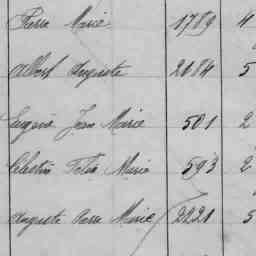 Pierre Marie 1789 4
Albert Auguste 2084 5
Eugène Jean Marie 501 2
Célestin Félix Marie 593 2
Auguste Pierre Marie 2221 5